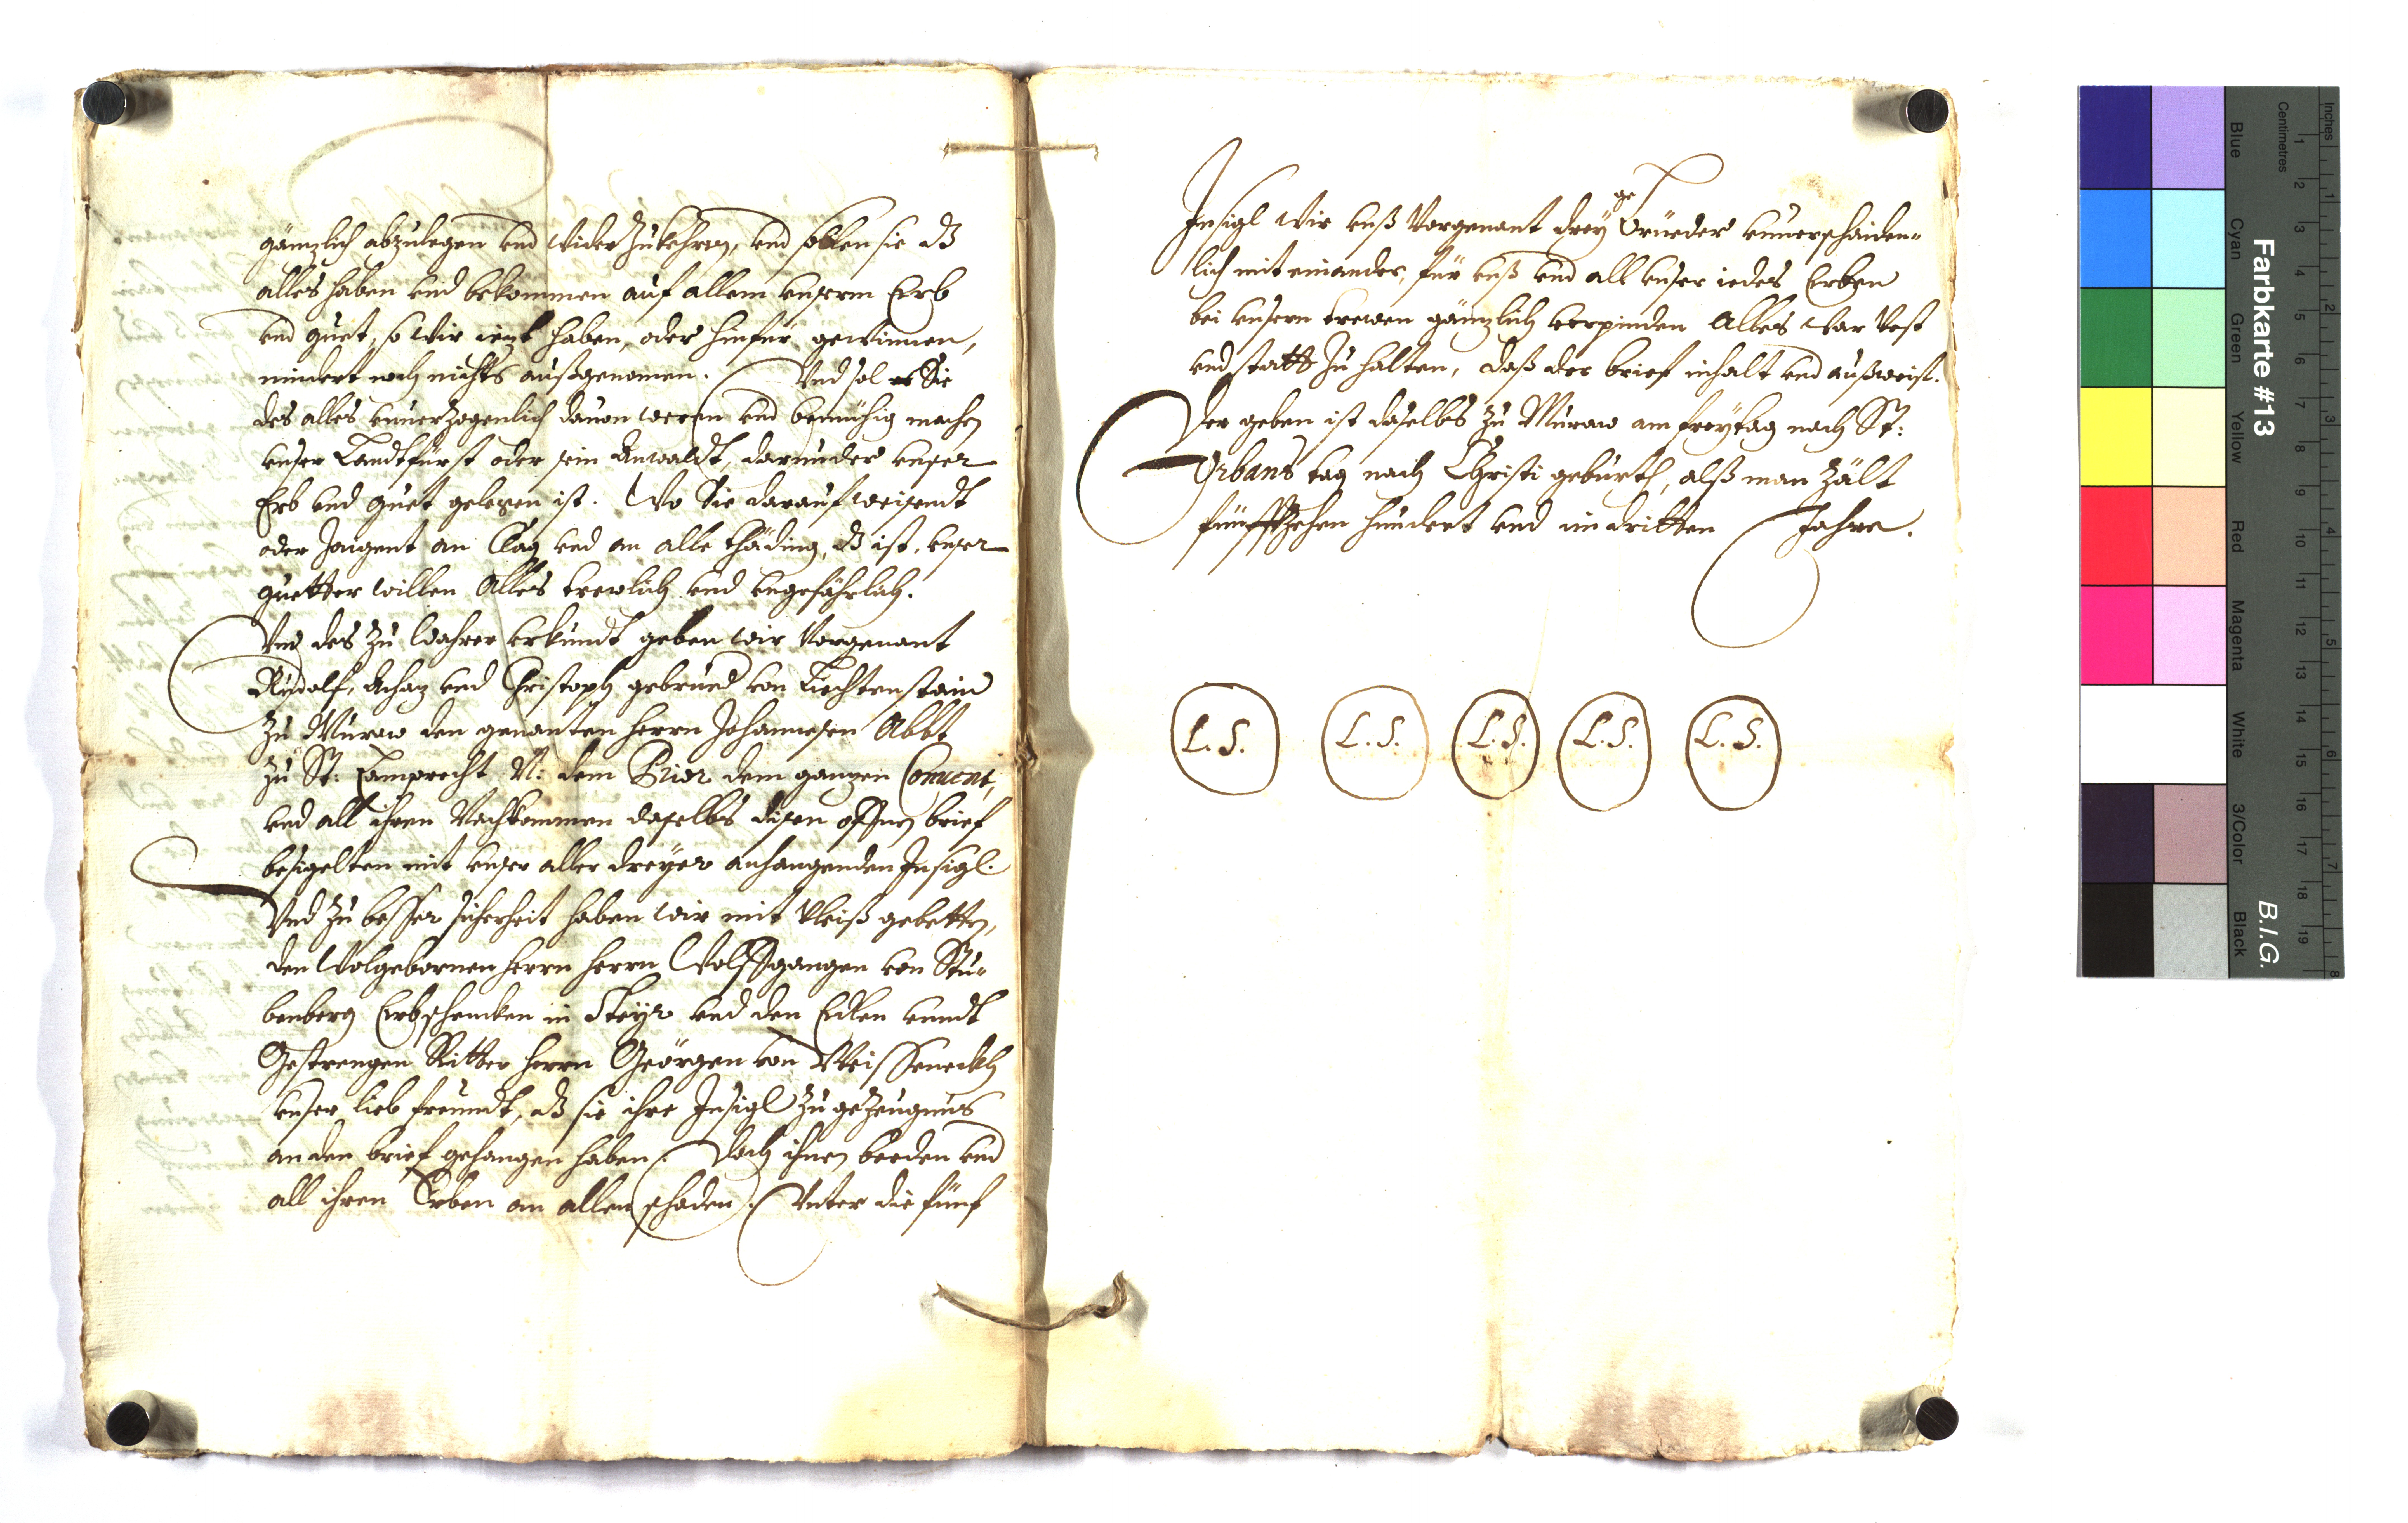 gänzlich abzulegen vnd wider zukehren, vnd sollen sie dz
alles haben vnd bekommen auf allem vnserm Erb
vnd guet, so wir iezt haben, oder hinfür gewinnen,
mindert noch nichts außgenomen. Vnd sol Sie
des alles vnuerzogenlich dauon weren vnd benuehig machen
vnser Landtfürst oder sein Anwaldt, darunder vnser
Erb vnd guet gelegen ist. Wo Sie darauf weisendt
oder zaigent an Clag vnd an alle thäding, dz ist vnser
guetter willen Alles trewlich vnd vngefährlich.
Vnd des zu wahrer vrkundt geben wir Vorgenant
Rudolf, Achaz vnd Christoph gebrüed von Liechtenstain
zu Muraw den genanten herrn Johannesen Abbt
zu St: Lamprecht N: dem Prior dem ganzen Conuent,
vnd all ihren Nachkommen daselbs disen offnen brief
besigelten mit vnser aller dreyer anhangenden Insigl.
Vnd zu besser sicherheit haben wir mit vleiß gebetten,
den Wolgebornen herrn herrn Wolffgangen von Stu-
benberg Erbschencken in Steyr vnd den Edlen vnndt
Gestrengen Ritter herrn Geörgen von Weisseneckh
vnser lieb freundt, dz sie ihre Insigl zu gezeugnus
an den brief gehangen haben. Doch ihnen beeden vnd
all ihren Erben an allen schaden. Vnter die fünf
Insigl wir vnß Vorgenant drey ge Brüeder vnuerschaiden-
lich mit einander, für vnß vnd all vnser iedes Erben
bei vnsern trewen gänzlich verpinden Alles war vest
vnd statt zu halten, daß der brief inhalt vnd außweist.
Der geben ist daselbs zu Muraw am freytag nach St:
Vrbans tag nach Christi geburth, alß man zält
fünffzehen hundert vnd im dritten Jahre.
L. S. L. S. L. S. L. S. L. S.
Farbkarte #13
B.I.G.
Blue Cyan Green Yellow Red Magenta White 3/Color Black
Centimetres Inches
1 2 3 4 5 6 7 8 9 10 11 12 13 14 15 16 17 18 19
1 2 3 4 5 6 7 8